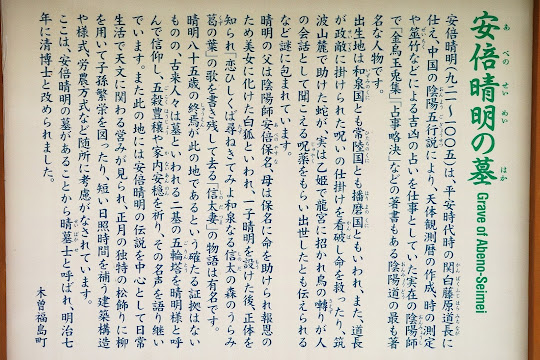 安倍晴明の墓
あべのせいめい はか
Grave of Abeno-Seimei
安倍晴明(九二一~一〇〇五)は、平安時代時の関白藤原道長に
仕え、中国の陰陽五行説により、天体観測暦の作成、時の測定
や、筮竹などによる吉凶の占いを仕事としていた実在の陰陽師
で、「金烏玉兎集」「占事略決」などの著書もある陰陽道の最も著
名な人物です。
出生地は和泉国とも常陸国とも播磨国ともいわれ、また、道長
が政敵に掛けられた呪いの仕掛けを看破して命を救ったり、筑
波山麓で助けた蛇が、実は乙姫で龍宮に招かれ鳥の囀りが人
の会話として聞こえる呪薬をもらい出世したとも伝えられる
など謎に包まれています。
晴明の父は陰陽師安倍保名、母は保名に命を助けられ報恩の
ため美女に化けた白狐といわれ、一子晴明を設けた後、正体を
知られ「恋ひしくば尋ねきてみよ和泉なる信太の森のうらみ
葛の葉」の歌を書き残して去る「信太妻」の物語は有名です。
晴明八十五歳の終焉が此の地であるという確たる証拠はない
ものの、古来人々は墓といわれる二基の五輪塔を晴明様と呼
んで信仰し、五穀豊穣や家内安穏を祈り、その名声を語り継い
でいます。また此の地には安倍晴明の伝説を中心として日常
生活で天文に関わる営みが見られ、正月の独特の松飾りに柳
を用いて子孫繁栄を図ったり、短い日照時間を補う建築構造
や様式、労農方式など随所に考慮がなされています。
ここは、安倍晴明の墓があることから晴墓士と呼ばれ、明治七
年に清博士と改められました。
木曽福島町